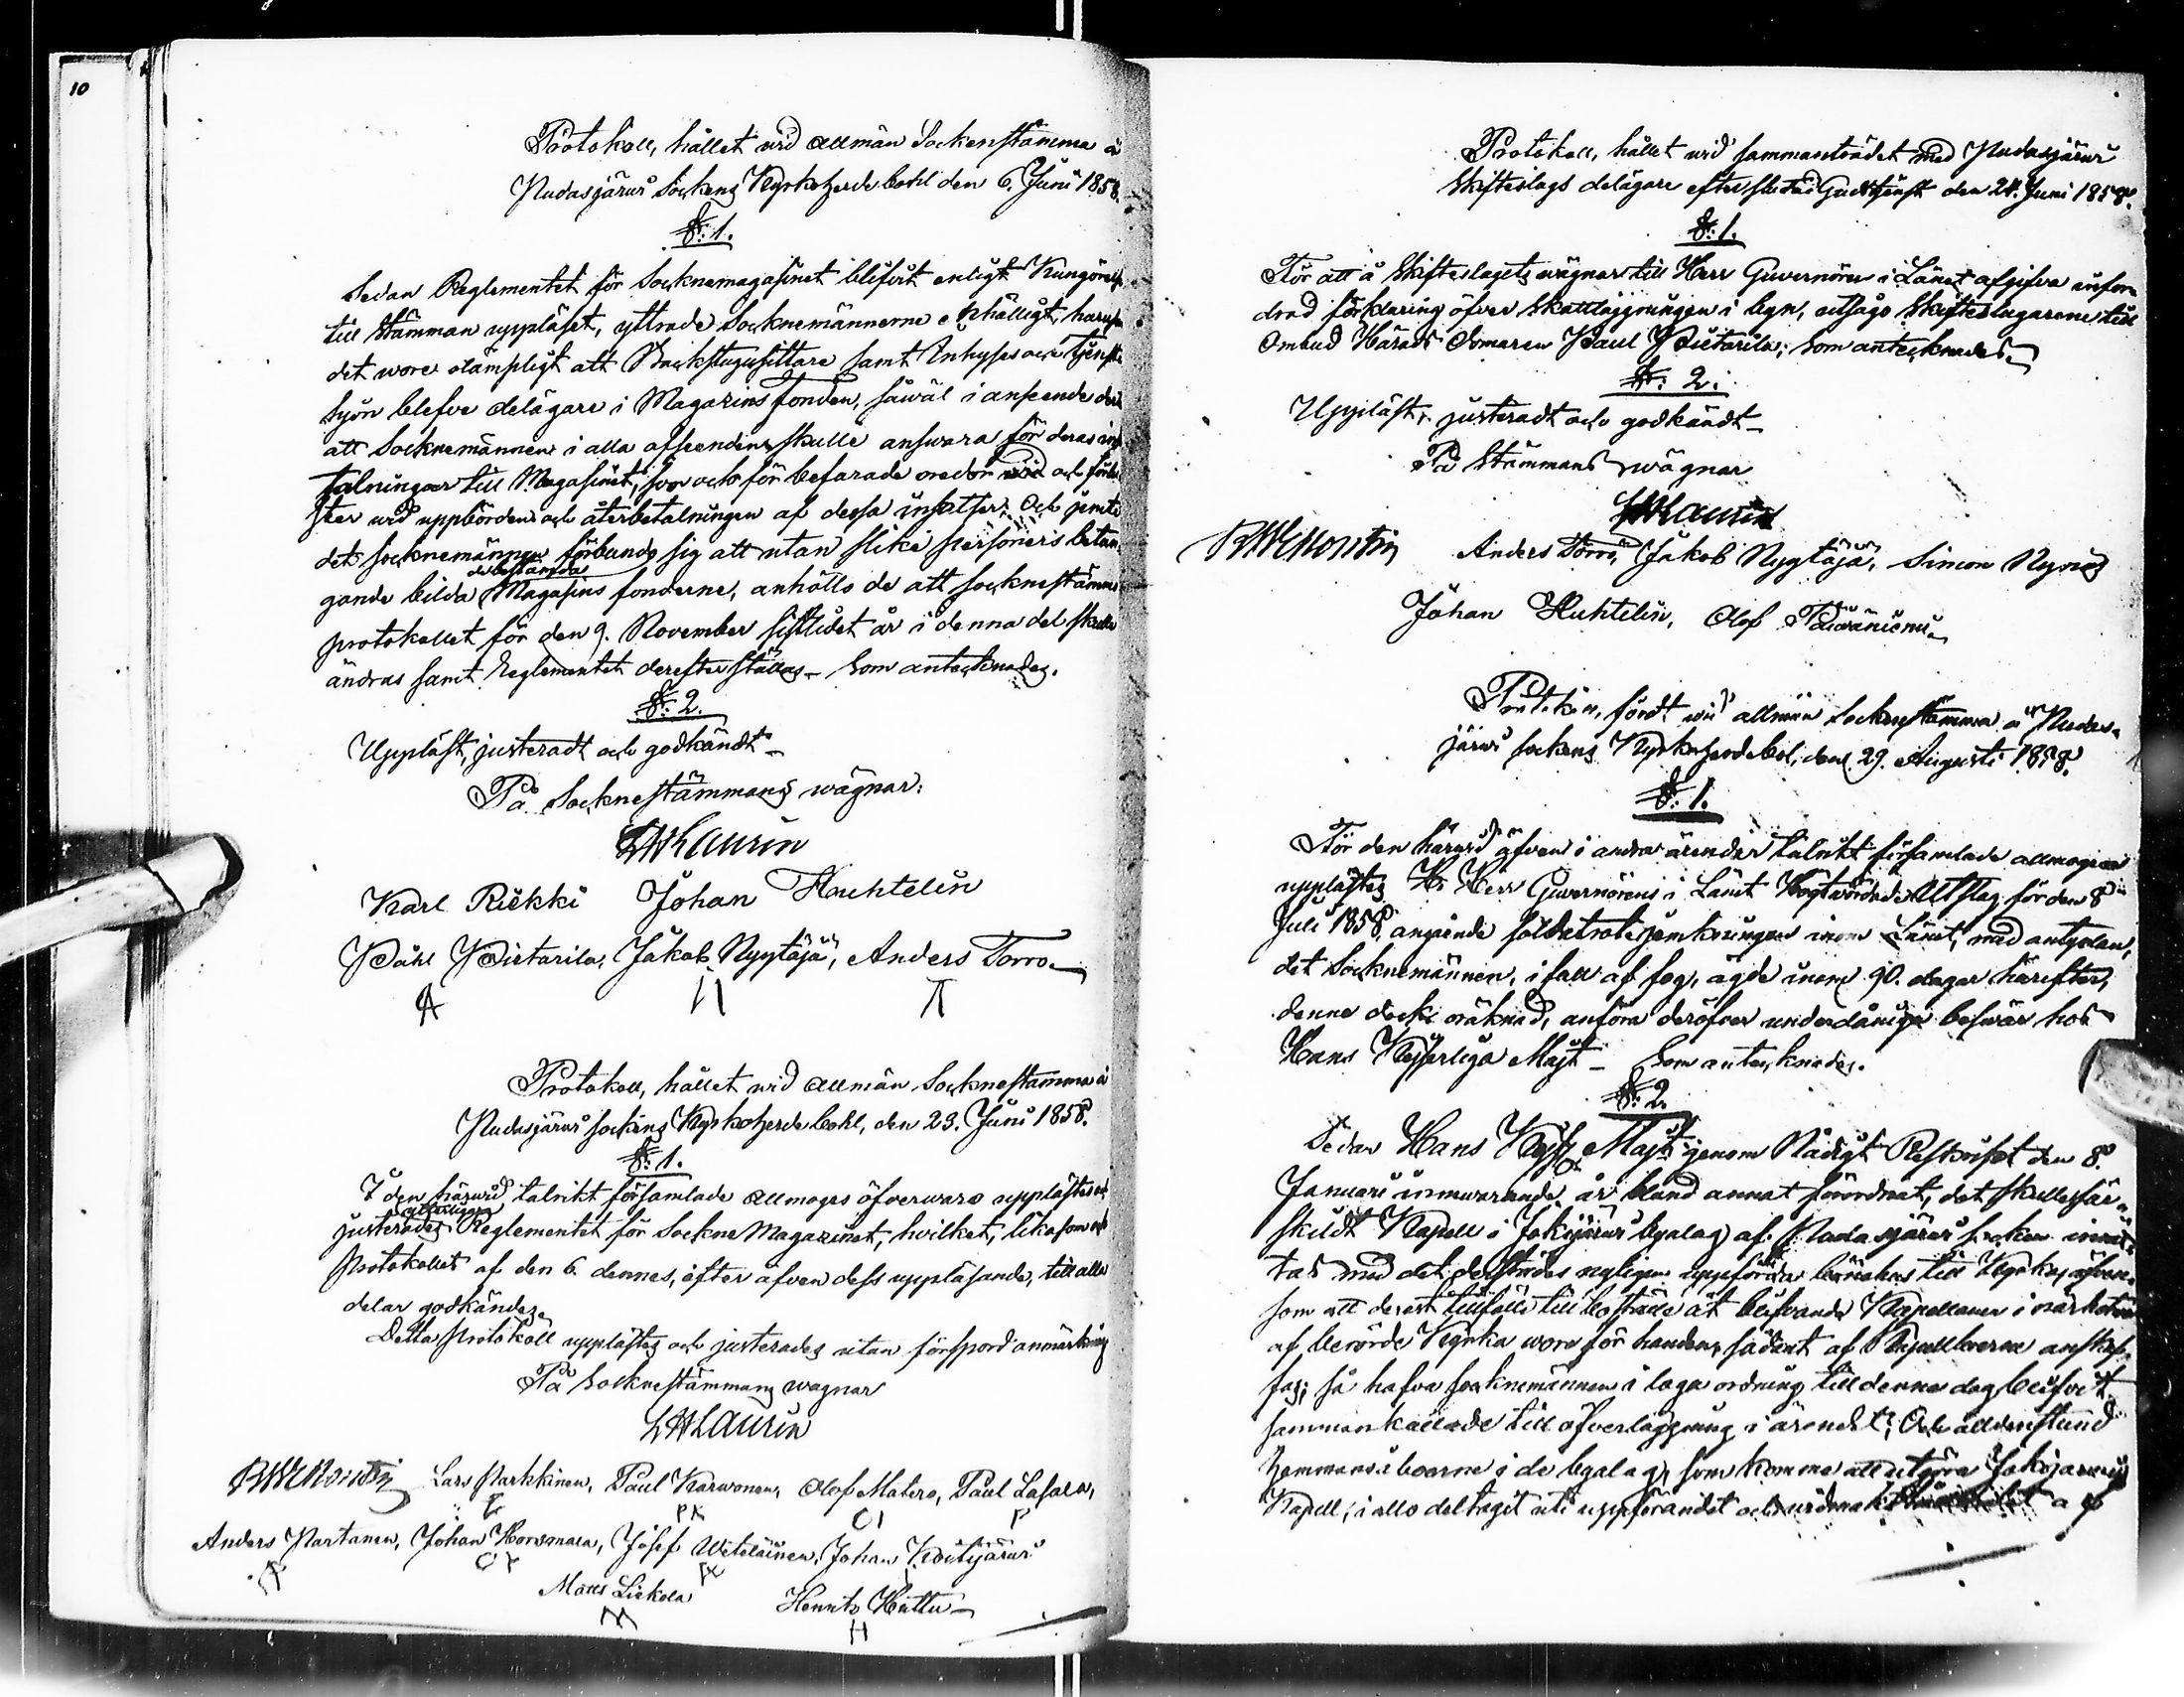 10
Protokoll, hållet wid allmän Sockenstämma å
Pudasjärwi Sockens Kyrkoherdebohl den 6. Juni 1858.
§: 1.
Sedan Reglementet för Socknemagasinet blifvit enligt Kungörelse
till Stämman uppläset, yttrade Socknemännerne enhälligt, huru
det wore olämpligt att Backstugusittare samt Inhyses och Tjenste
hjon blefve delägare i Magazins fonden, såwäl i anseende der
att Socknemännen i alla afseenden skulle answara för deras in
talningar till Magasinet, som ock för befarade oredor wid och förlu
ster wid uppbörden och återbetalningen af dessa insatser. Och jemte
det socknemännen förbundo sig att utan slike personers betun
gande bilda de bestämda Magasins fonderne, anhöllo de att socknestämmo
protokollet för den 9. November sistlidet år i denna del skulle
ändras samt Reglementet derefter ställas – Som antecknades.
§: 2.
Uppläst, justeradt och godkändt –
På Socknestämmans wägnar:
LHLaurin
Karl Riekki Johan Huhtelin
Påhl Pietarila, Jakob Nygtäjä, Anders Torro
Protokoll, hållet wid allmän Socknestämma å
Pudasjärwi Sockens Kyrkoherdebohl, den 23. Juni 1858.
§: 1.
I den härwid talrikt församlade allmoges öfverwaro upplästes och
justerades Reglementet för Sockne Magazinet, hvilket, likasom ock
Protokollet af den 6. dennes, efter äfven dess uppläsande, till alla
delar godkändes.
Detta Protokoll upplästes och justerades utan försport anmärkning
På Socknestämmans wägnar
LHLaurin
Lars Parkkinen, Paul Karwonen, Olof Matero, Paul Lasala,
PK OI P
Anders Partanen, Johan Hornmaa, Josef Weteläinen, Johan Koitijärwi
Matts Liekola Henrik Hiltu
M H
Protokoll, hållet wid sammanträdet med Pudasjärwi
Skifteslags delägare efter slutad Gudstjenst den 24. Juni 1858.
§: 1.
För att å Skifteslagets wägnar till Herr Guvernören i Länet afgifva infor
drad förklaring öfver skattläggningen i byn, utsågo Skifteslagarene till
Ombud Härads Domaren Paul Pietarila; Som antecknades.
§: 2.
Uppläst, justeradt och godkändt –
På Stämmans wägnar
LHLaurin
Anders Törrö, Jakob Nygtäjä, Simon
Johan Huhtelin, Olof
fördt wid allmän Socknestämma å Pudas-
järwi Sockens Kyrkoherdebol, den 29. Augusti 1858.
§: 1.
För den härwid äfven i andra ärender talrikt församlade allmogen
upplästes Hr Herr Guvernörens i Länet Högtwördade Utslag för den 8
Juli 1858, angående soldatrotejemkningen inom Länet, med antydan,
det Socknemännen, i fall af fog, ägde inom 90. dagar härefter,
denna dock oräknad, anföra deröfver underdåniga beswär hos
Hans Kejserliga Majt – Som antecknades.
§: 2.
Sedan Hans Kejs Majt genom Nådigt Reskript den 8.
Januari innewarande år bland annat förordnat, det skulle sär
skildt Kapell i Jokijärwi byalag af Pudasjärwi socken inrät
tas med det derstädes nyligen uppförda bönehus till Kyrka, äfven
som att derest tillfälle till boställe åt blifvande Kapellanen i närheten
af berörde Kyrka wore för handen, sådant af Kapellboerne anskaf
fas; så hafva socknemännen i laga ordning till denna dag blifvit
sammankallade till öfverläggning i ärendet; Och alldenstund
hemmansåboerne i de byalag, som komme att utgöra Jokijärwi
Kapell, i allo deltagit uti uppförandet och widmakt af